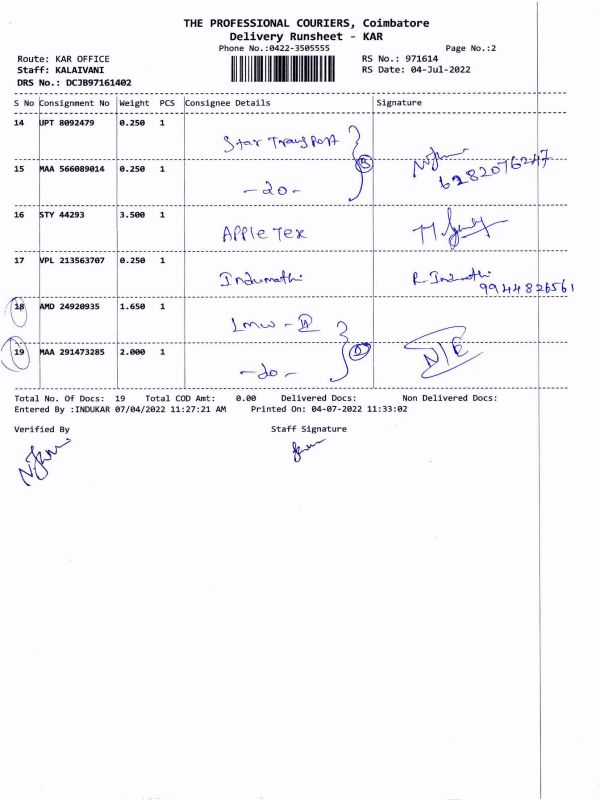 THE PROFESSIONAL COURIERS, Coimbatore
Delivery Runsheet - KAR
Phone No.:0422-3505555 Page No.:2
Route: KAR OFFICE RS No.: 971614
Staff: KALAIVANI RS Date: 04-Jul-2022
DRS No.: DCJB97161402
S No Consignment No Weight PCS Consignee Details Signature
14 UPT 8092479 0.250 1 Star Transport
15 MAA 566089014 0.250 1 -do- 6282076247
16 STY 44293 3.500 1 Apple Tex
17 VPL 213563707 0.250 1 Indumathi R. Indumathi
9944826561
18 AMD 24920935 1.650 1 Lmw -
19 MAA 291473285 2.000 1 -do- N/E
Total No. Of Docs: 19 Total COD Amt: 0.00 Delivered Docs: Non Delivered Docs:
Entered By :INDUKAR 07/04/2022 11:27:21 AM Printed On: 04-07-2022 11:33:02
Verified By Staff Signature